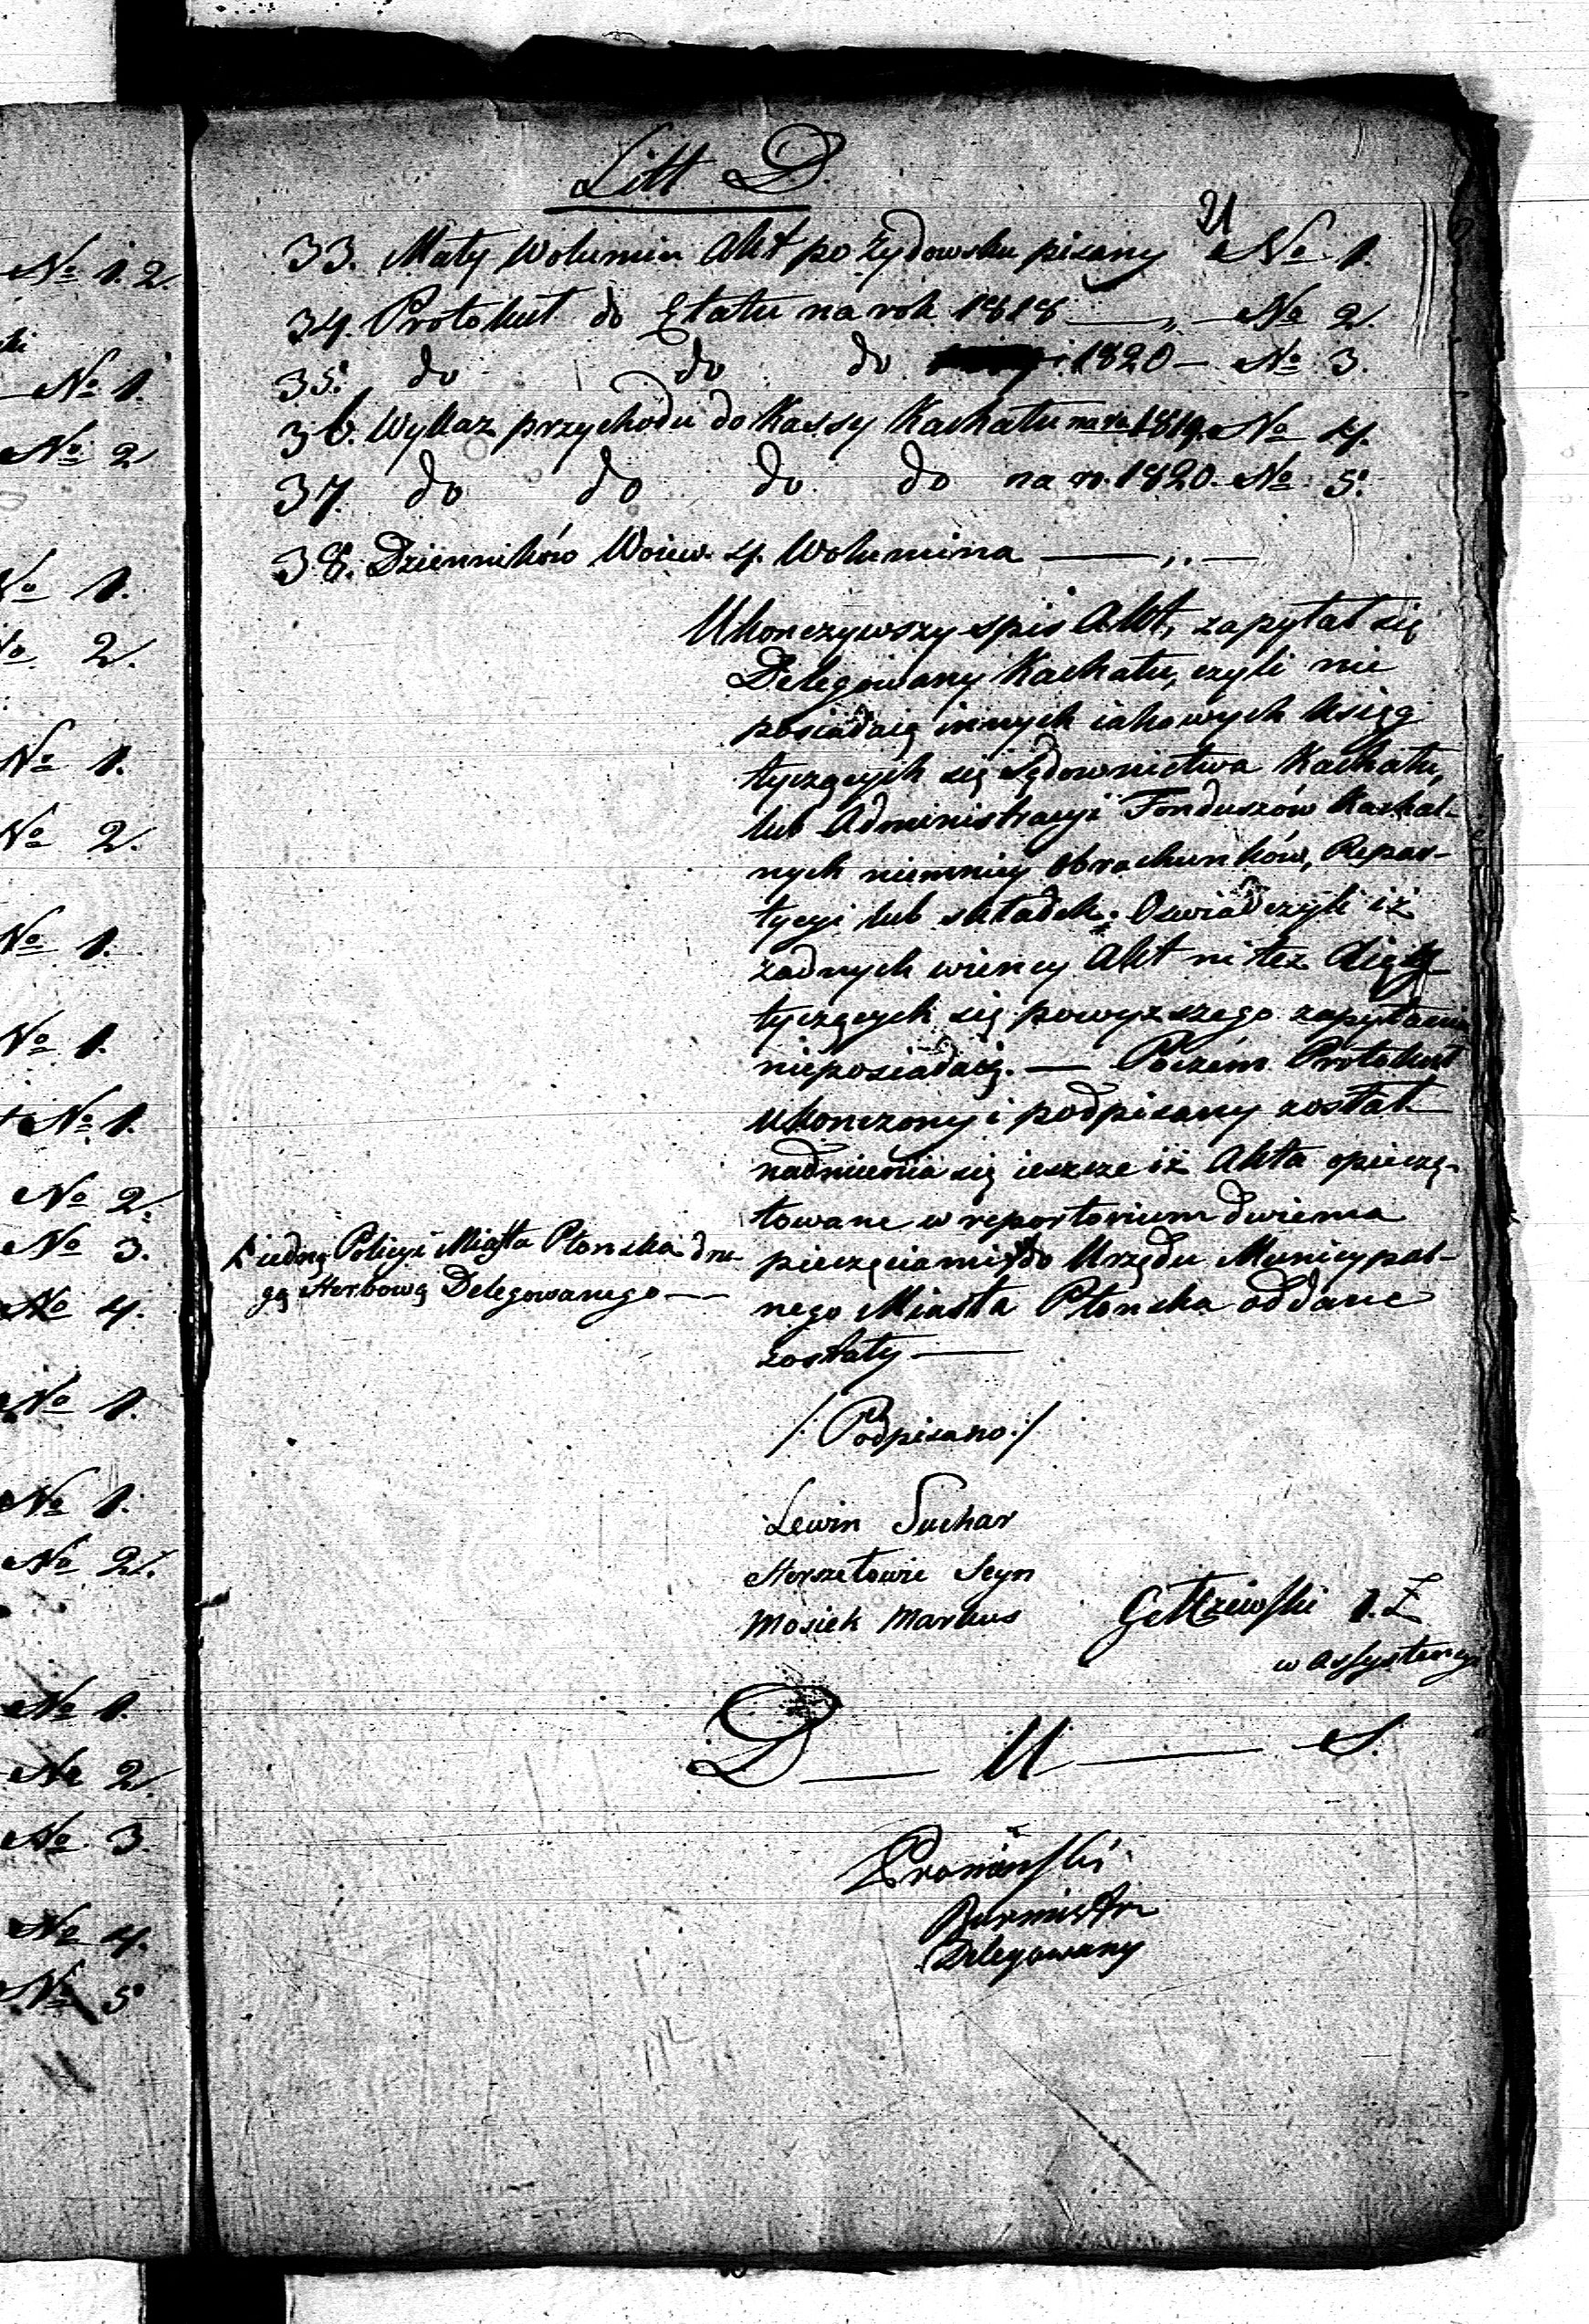 Litt D.
21
33. Mały Wolumin Akt po Żydowsku pisany № 1.
34. Protokuł do Etatu na rok 1818 — „ — № 2.
35. do do do 1820 — № 3.
36. Wykaz przychodu do Kassy Kachału na ro 1819. № 4.
37. do do do do na ro. 1820. № 5.
38. Dzienników Woiew. 4. Wolumina — „ —
Ukonczywszy spis Akt, zapytał się
Delegowany Kachału, czyli nie
posiadaią innych iakowych ksiąg
tyczących się Sądownictwa Kachału,
lub Administracyi Fonduszów Kachal-
nych niemniey Obrachunków, Repar-
tycyi lub składek. Oswiadczyli iż
żadnych wiency Akt ni też
tyczących się powyższego zapytania
nieposiadaią. — Poczém Protokuł
ukonczony i podpisany został
nadmienia się ieszcze iż Akta opieczę-
towane w reportorium dwiema
pieczęciami do Urzędu Municypal-
nego Miasta Płonska oddane
zostały —
iedną Policyi Miasta Płonska dru-
gą Herbową Delegowanego —
/: Podpisano :/
Lewin Suchar
Herszełowie Seyn
Mosiek Markus
1. Z
w assystency
D — U — S.
Burmistrz
Delegowany
№ 1. 2.
№ 1.
№ 2
№ 1.
№ 2.
№ 1.
№ 2.
№ 1.
№ 1.
№ 1.
№ 2.
№ 3.
№ 4.
№ 1.
№ 1.
№ 2.
№ 1
№ 2.
№ 3.
№ 4.
№ 5